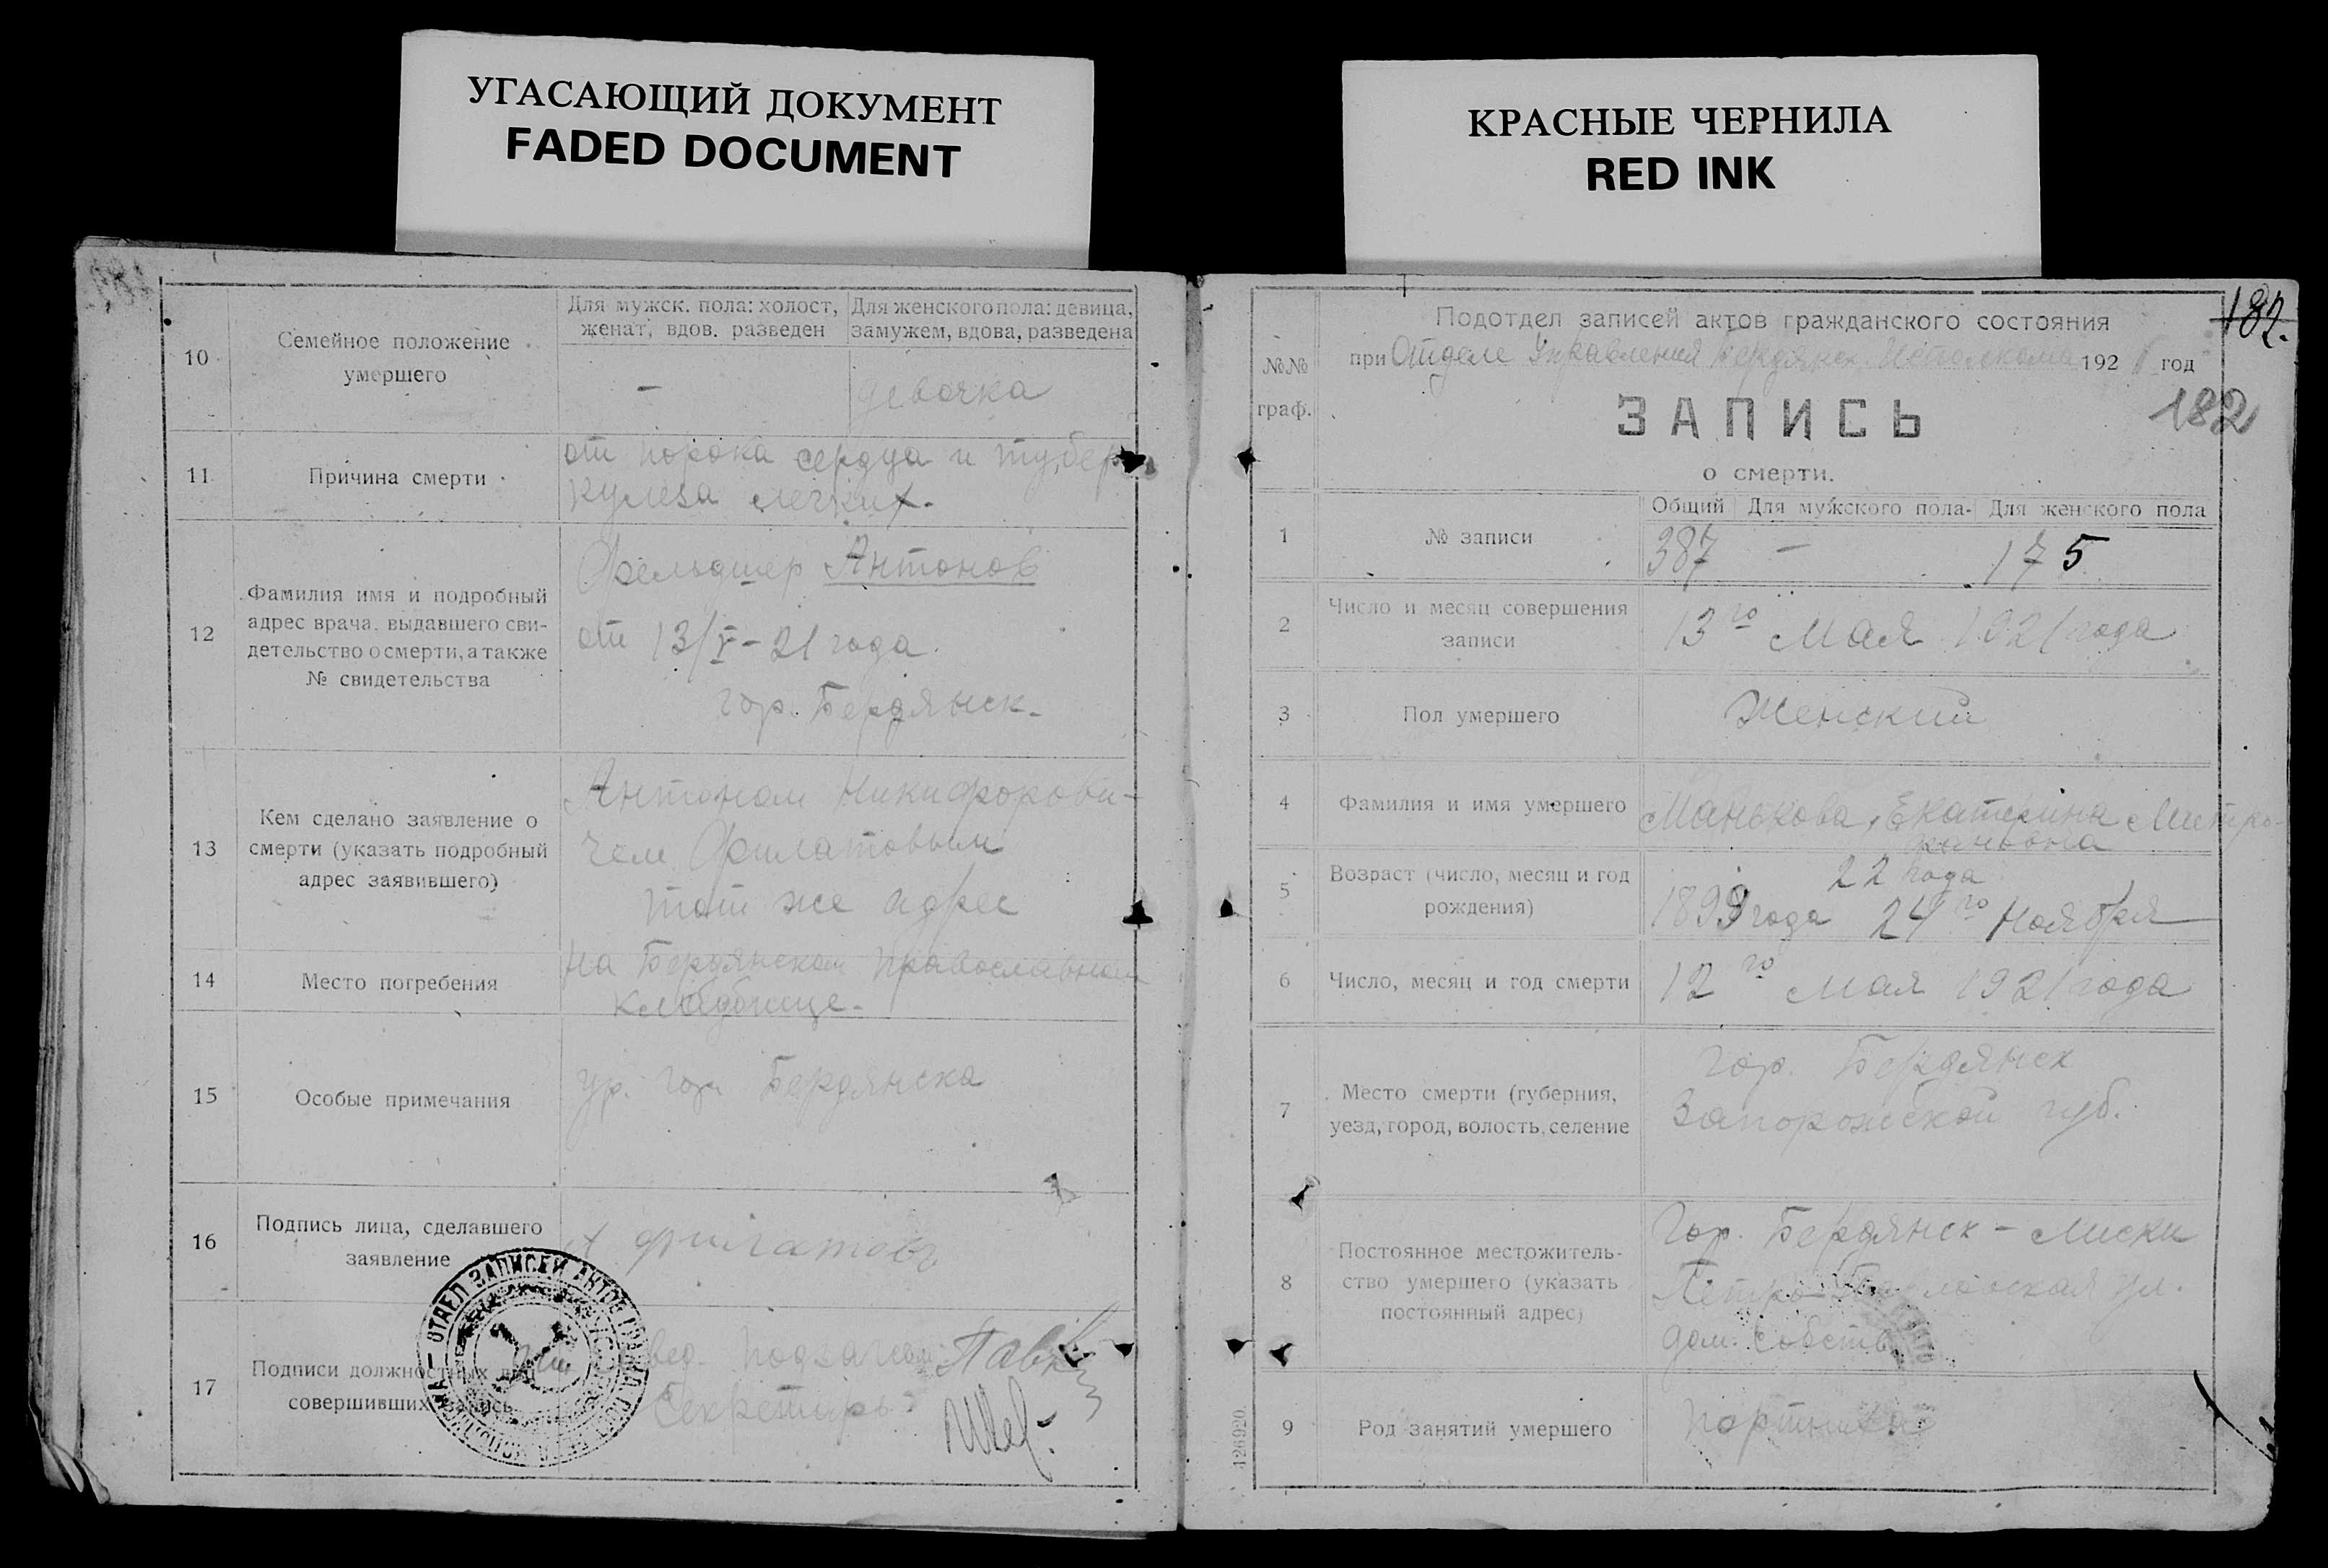 УГАСАЮЩИЙ ДОКУМЕНТ
FADED DOCUMENT
КРАСНЫЕ ЧЕРНИЛА
RED INK
10
Семейное положение
умершего
Для мужск. пола: холост,
женат, вдов. разведен
Для женского пола: девица,
замужем, вдова, разведена
—
девочка
11
Причина смерти
от порока сердца и тубер
кулеза легких.
12
Фамилия имя и подробный
адрес врача, выдавшего сви-
детельство о смерти, а также
№ свидетельства
Фельдшер Антонов
от 13/V-21 года.
гор. Бердянск.
13
Кем сделано заявление о
смерти (указать подробный
адрес заявившего)
Антоном Никифорови-
чем Филатовым
тот же адрес
14
Место погребения
на Бердянском православном
кладбище.
15
Особые примечания
ур. гор. Бердянска
16
Подпись лица, сделавшего
заявление
А Филатовъ
17
Подписи должностных лиц
совершивших запись
Секретарь
ОТДЕЛ ЗАПИСЕЙ АКТОВ
182.
№№
граф.
Подотдел записей актов гражданского состояния
при Отделе Управления Бердянск. Исполкома 192 год
182
ЗАПИСЬ
о смерти.
1
№ записи
Общий
Для мужского пола
Для женского пола
387
—
175
2
Число и месяц совершения
записи
13го Мая 1921 года
3
Пол умершего
Женский
4
Фамилия и имя умершего
Манькова, Екатерина Митро-
фановна
5
Возраст (число, месяц и год
рождения)
22 года
1899 года 24го Ноября
6
Число, месяц и год смерти
12го мая 1921 года
7
Место смерти (губерния,
уезд, город, волость, селение
гор. Бердянск
Запорожской губ.
8
Постоянное местожитель-
ство умершего (указать
постоянный адрес)
Гор. Бердянск - Лиски
Петро-Павловская ул.
дом. собств.
9
Род занятий умершего
портниха
126920.